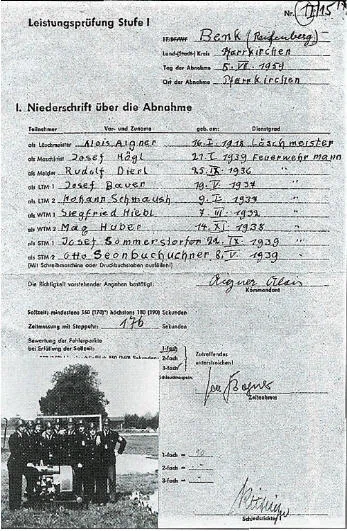 Leistungsprüfung Stufe I
Nr. II/15
Benk (Reifenberg)
Land-(Stadt-) Kreis Pfarrkirchen
Tag der Abnahme 5. VI. 1959
Ort der Abnahme Pfarrkirchen
I. Niederschrift über die Abnahme
Teilnehmer Vor- und Zuname geb. am: Dienstgrad
als Löschmeister Alois Aigner 16. I. 1918 Löschmeister
als Maschinist Josef Högl 27. I. 1939 Feuerwehrmann
als Melder Rudolf Dierl 25. IX. 1936 "
als LTM 1 Josef Bauer 19. V. 1937 "
als LTM 2 Johann Schmaush 9. I. 1937 "
als WTM 1 Siegfried Hiebl 7. III. 1932 "
als WTM 2 Mag Huber 14. XI. 1938 "
als STM 1 Josef Sommerstorfer 21. IX. 1939 "
als STM 2 Otto Seonbuchuchner 8. V. 1939 "
(Mit Schreibmaschine oder Druckbuchstaben ausfüllen!)
Die Richtigkeit vorstehender Angaben bestätigt:
Aigner Alois
Kommandant
Sollzeit: mindestens 160 (170)*) höchstens 180 (190) Sekunden
Zeitmessung mit Stoppuhr: 176 Sekunden
Bewertung der Fehlerpunkte
bei Erfüllung der Sollzeit:
1-fach
2-fach
3-fach
Zutreffendes
unterstreichen!
Zeitnehmer
1-fach =
2-fach =
3-fach =
Schiedsrichter